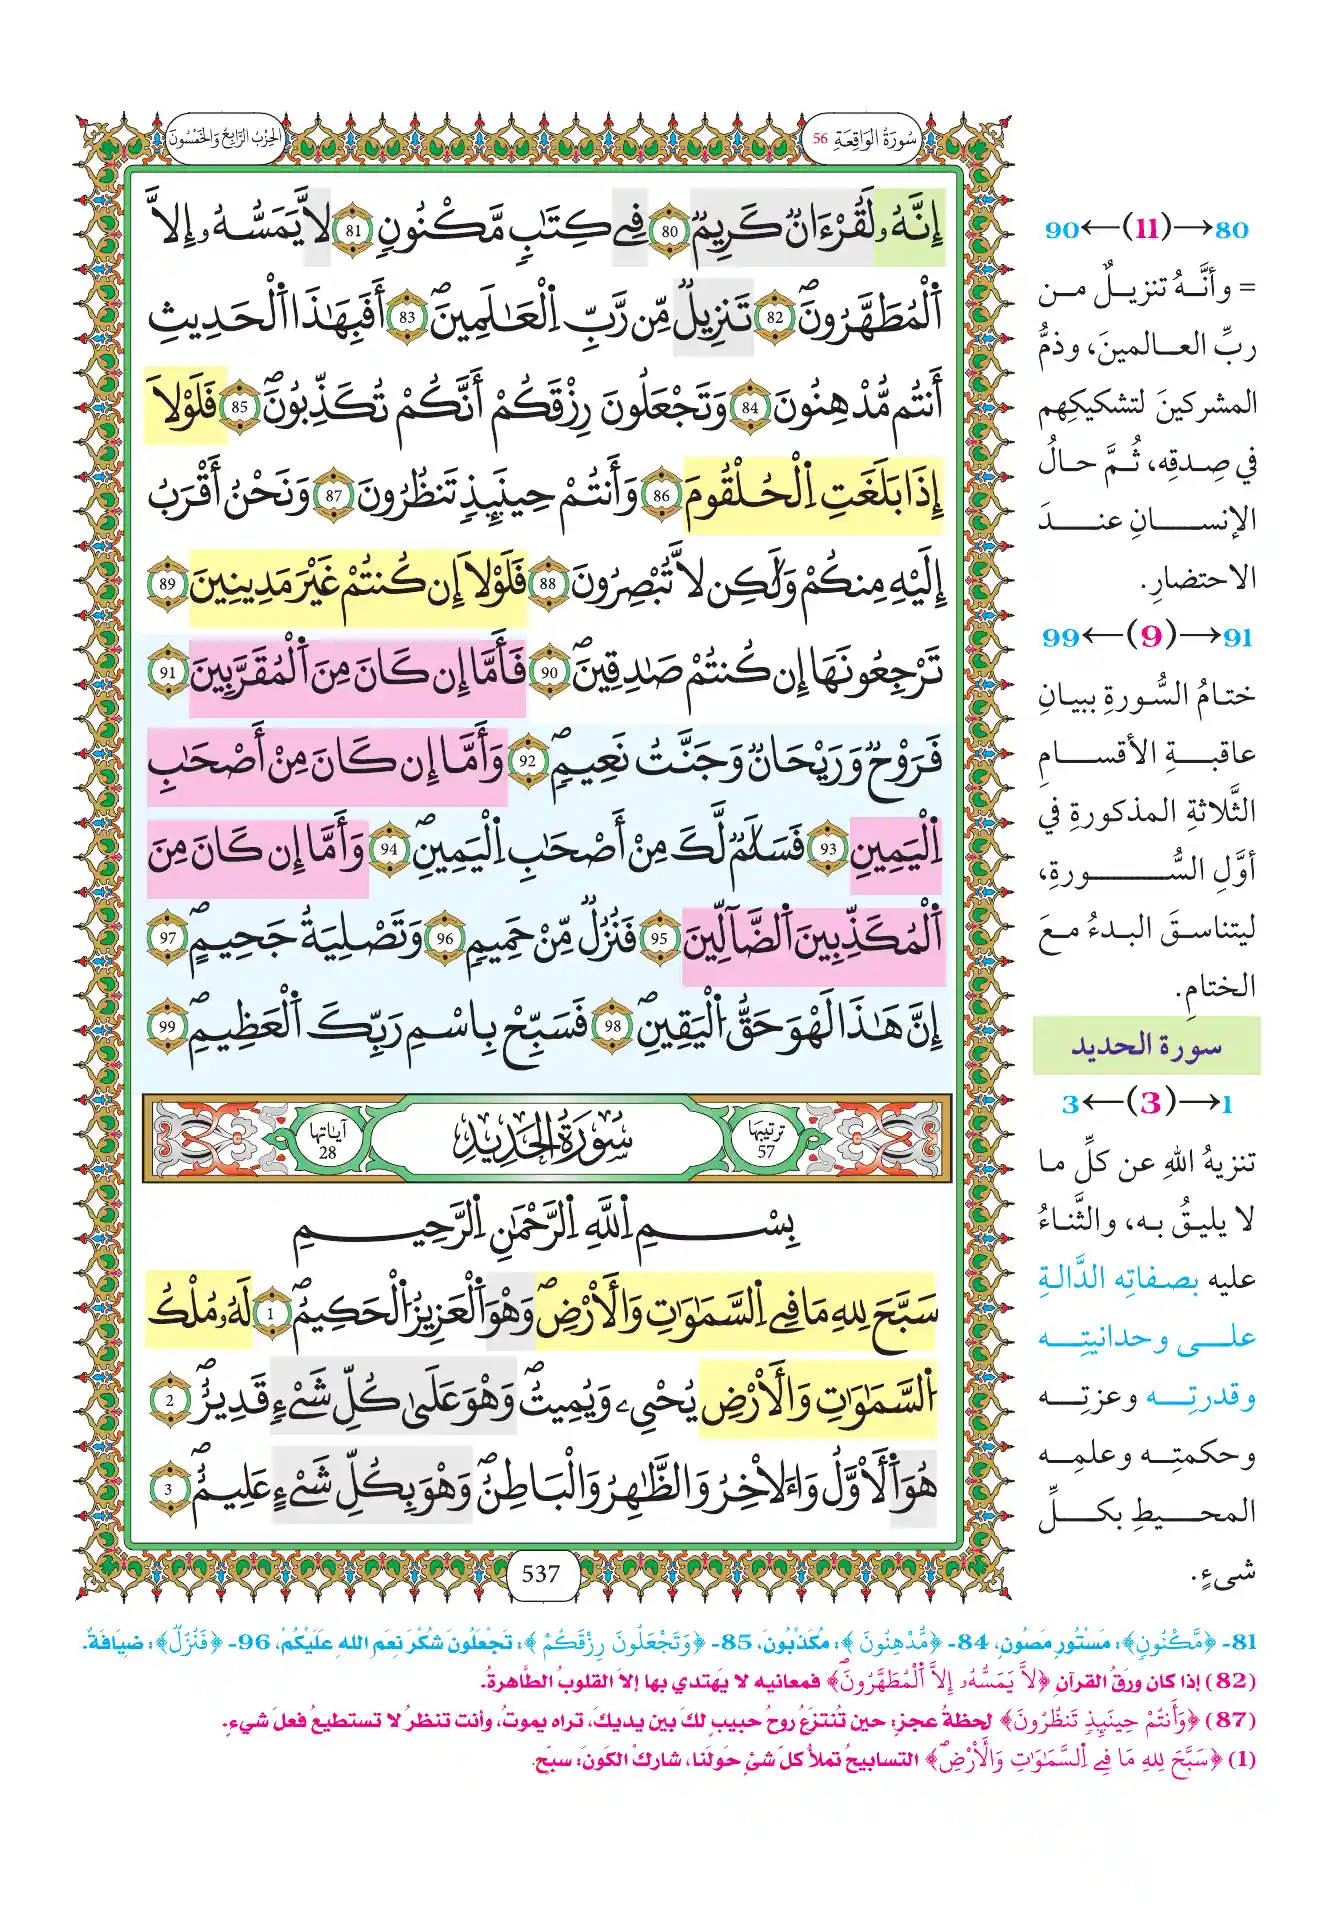 سُورَةُ الوَاقِعَةِ 56
الحِزْبُ الرَّابِعُ وَالخَمْسُونَ
إِنَّهُۥ لَقُرْءَانٌ كَرِيمٌ 80 فِے كِتَٰبٍ مَّكْنُونٍ 81 لَّا يَمَسُّهُۥ إِلَّا
اَ۬لْمُطَهَّرُونَۖ 82 تَنزِيلٌ مِّن رَّبِّ اِ۬لْعَٰلَمِينَۖ 83 أَفَبِهَٰذَا اَ۬لْحَدِيثِ
أَنتُم مُّدْهِنُونَ 84 وَتَجْعَلُونَ رِزْقَكُمْ أَنَّكُمْ تُكَذِّبُونَۖ 85 فَلَوْلَا
إِذَا بَلَغَتِ اِ۬لْحُلْقُومَ 86 وَأَنتُمْ حِينَئِذٍ تَنظُرُونَ 87 وَنَحْنُ أَقْرَبُ
إِلَيْهِ مِنكُمْ وَلَٰكِن لَّا تُبْصِرُونَ 88 فَلَوْلَا إِن كُنتُمْ غَيْرَ مَدِينِينَ 89
تَرْجِعُونَهَا إِن كُنتُمْ صَٰدِقِينَۖ 90 فَأَمَّا إِن كَانَ مِنَ اَ۬لْمُقَرَّبِينَ 91
فَرَوْحٌ وَرَيْحَانٌ وَجَنَّتُ نَعِيمٍۖ 92 وَأَمَّا إِن كَانَ مِنْ أَصْحَٰبِ
اِ۬لْيَمِينِ 93 فَسَلَٰمٌ لَّكَ مِنْ أَصْحَٰبِ اِ۬لْيَمِينِۖ 94 وَأَمَّا إِن كَانَ مِنَ
اَ۬لْمُكَذِّبِينَ اَ۬لضَّآلِّينَ 95 فَنُزُلٌ مِّنْ حَمِيمٍ 96 وَتَصْلِيَةُ جَحِيمٍۖ 97
إِنَّ هَٰذَا لَهْوَ حَقُّ اُ۬لْيَقِينِۖ 98 فَسَبِّحْ بِاسْمِ رَبِّكَ اَ۬لْعَظِيمِۖ 99
ترتيبها 57
سُورَةُ الحَدِيدِ
آياتها 28
بِسْمِ اِ۬للَّهِ اِ۬لرَّحْمَٰنِ اِ۬لرَّحِيمِ
سَبَّحَ لِلهِ مَا فِے اِ۬لسَّمَٰوَٰتِ وَالْأَرْضِۖ وَهْوَ اَ۬لْعَزِيزُ اُ۬لْحَكِيمُۖ 1 لَهُۥ مُلْكُ
اُ۬لسَّمَٰوَٰتِ وَالْأَرْضِ يُحْيِۦ وَيُمِيتُۖ وَهْوَ عَلَىٰ كُلِّ شَےْءٍ قَدِيرٌۖ 2
هُوَ اَ۬لْأَوَّلُ وَالْأٓخِرُ وَالظَّٰهِرُ وَالْبَاطِنُۖ وَهْوَ بِكُلِّ شَےْءٍ عَلِيمٌۖ 3
537
80←(11)→90
= وأنَّهُ تنزيلٌ من
ربِّ العالمينَ، وذمُّ
المشركينَ لتشكيكِهم
في صِدقِه، ثُمَّ حالُ
الإنسانِ عندَ
الاحتضارِ.
91←(9)→99
ختامُ السُّورةِ ببيانِ
عاقبةِ الأقسامِ
الثَّلاثةِ المذكورةِ في
أوَّلِ السُّورةِ،
ليتناسقَ البدءُ معَ
الختامِ.
سورة الحديد
1←(3)→3
تنزيهُ اللهِ عن كلِّ ما
لا يليقُ به، والثَّناءُ
عليه بصفاتِه الدَّالةِ
على وحدانيتِه
وقدرتِه وعزتِه
وحكمتِه وعلمِه
المحيطِ بكلِّ
شيءٍ.
81- ﴿مَّكْنُونٍ﴾: مَسْتُورٍ مَصُونٍ، 84- ﴿مُّدْهِنُونَ﴾: مُكَذِّبُونَ، 85- ﴿وَتَجْعَلُونَ رِزْقَكُمْ﴾: تَجْعَلُونَ شُكْرَ نِعَمِ اللهِ عَلَيْكُمْ، 96- ﴿فَنُزُلٌ﴾: ضِيَافَةٌ.
(82) إذا كان ورقُ القرآنِ ﴿لَّا يَمَسُّهُۥ إِلَّا اَ۬لْمُطَهَّرُونَۖ﴾ فمعانيه لا يَهتدي بها إلا القلوبُ الطَّاهرةُ.
(87) ﴿وَأَنتُمْ حِينَئِذٍ تَنظُرُونَ﴾ لحظةُ عجزٍ: حين تُنتزعُ روحُ حبيبٍ لكَ بين يديكَ، تراه يموتُ، وأنت تنظرُ لا تستطيعُ فعلَ شيءٍ.
(1) ﴿سَبَّحَ لِلهِ مَا فِے اِ۬لسَّمَٰوَٰتِ وَالْأَرْضِۖ﴾ التسابيحُ تملأُ كلَّ شئٍ حَولَنا، شاركْ الكَونَ: سبّح.